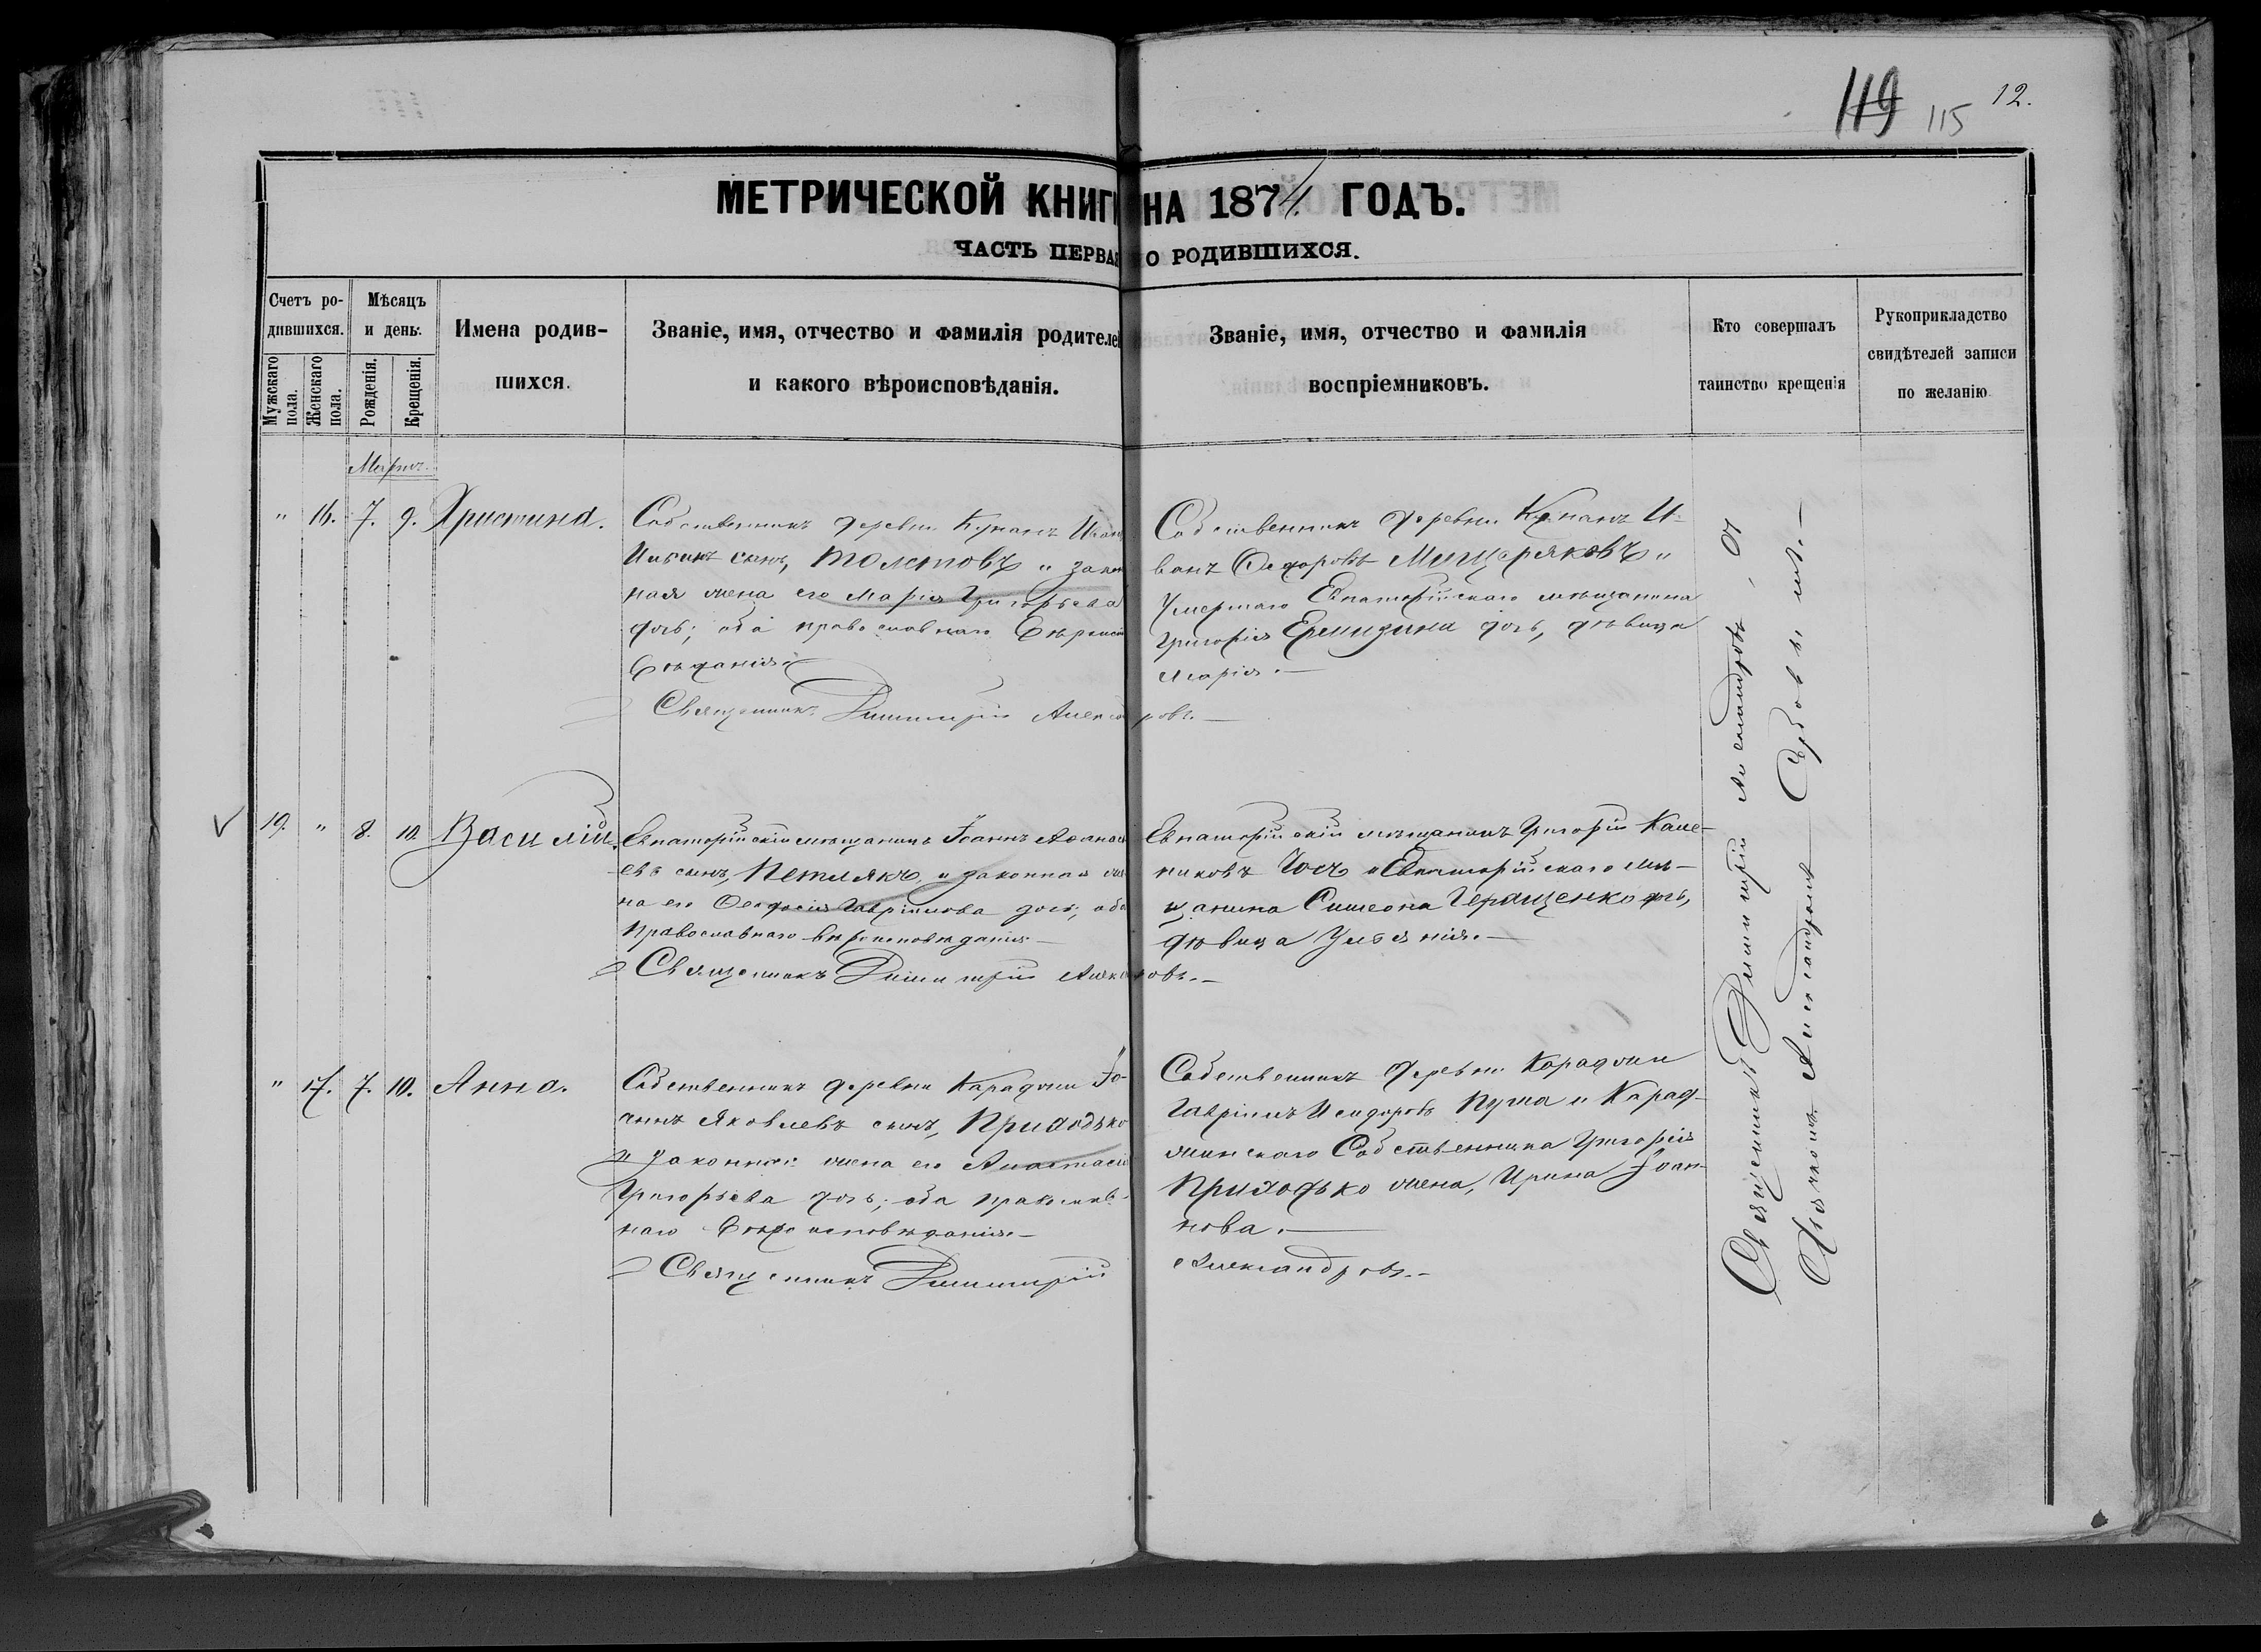 119 115 12.
МЕТРИЧЕСКОЙ КНИГ НА 1874 ГОДЪ.
ЧАСТЬ ПЕРВАЯ О РОДИВШИХСЯ.
Счетъ ро-
дившихся.
Мужскаго пола.
Женскаго пола.
Мѣсяцъ
и день.
Рожденія.
Крещенія.
Имена родив-
шихся.
Званіе, имя, отчество и фамилія родителей
и какого вѣроисповѣданія.
Званіе, имя, отчество и фамилія
воспріемниковъ.
Кто совершалъ
таинство крещенія
Рукоприкладство
свидѣтелей записи
по желанію
Мартъ
" 16. 7. 9. Христина.
Собственникъ деревни Кунанъ Иванъ
сынъ, Толстовъ и закон
ная жена его Марія Григорьева
дочь; оба православнаго вѣроиспо
вѣданія.—
Священникъ Димитрій Алекс ровъ.—
Собственникъ деревни Кунанъ И-
ванъ Ѳедоровъ Мищеряковъ и
умершаго Евпаторійскаго мѣщанина
Григорія дочь, дѣвица
Марія.—
19. " 8. 10. Василій.
Евпаторійскій мѣщанинъ Іоаннъ Аѳанась
евъ сынъ, Петлякъ, и законная же
на его Ѳеодосія Гавріилова дочь, оба
православнаго вѣроисповѣданія—
Священникъ Димитрій Алекс овъ.—
Евпаторійскій мѣщанинъ Григорій
и Евпаторійскаго мѣ-
щанина Симеона Геращенко дочь,
дѣвица Уліянія.—
" 17. 7. 10. Анна.
Собственникъ деревни Караджи Іо-
аннъ Яковлевъ сынъ, Приходько
и законная жена его Анастасія
Григорьева дочь; оба православ-
наго вѣроисповѣданія—
Священникъ Димитрій
Собственникъ деревни Караджи
Гавріилъ Исидоровъ и Карад-
жинскаго Собственника Григорія
Приходько жена, Ирина Іоан-
нова.—
Александровъ.—
Священникъ Димитрій Александровъ
Александръ